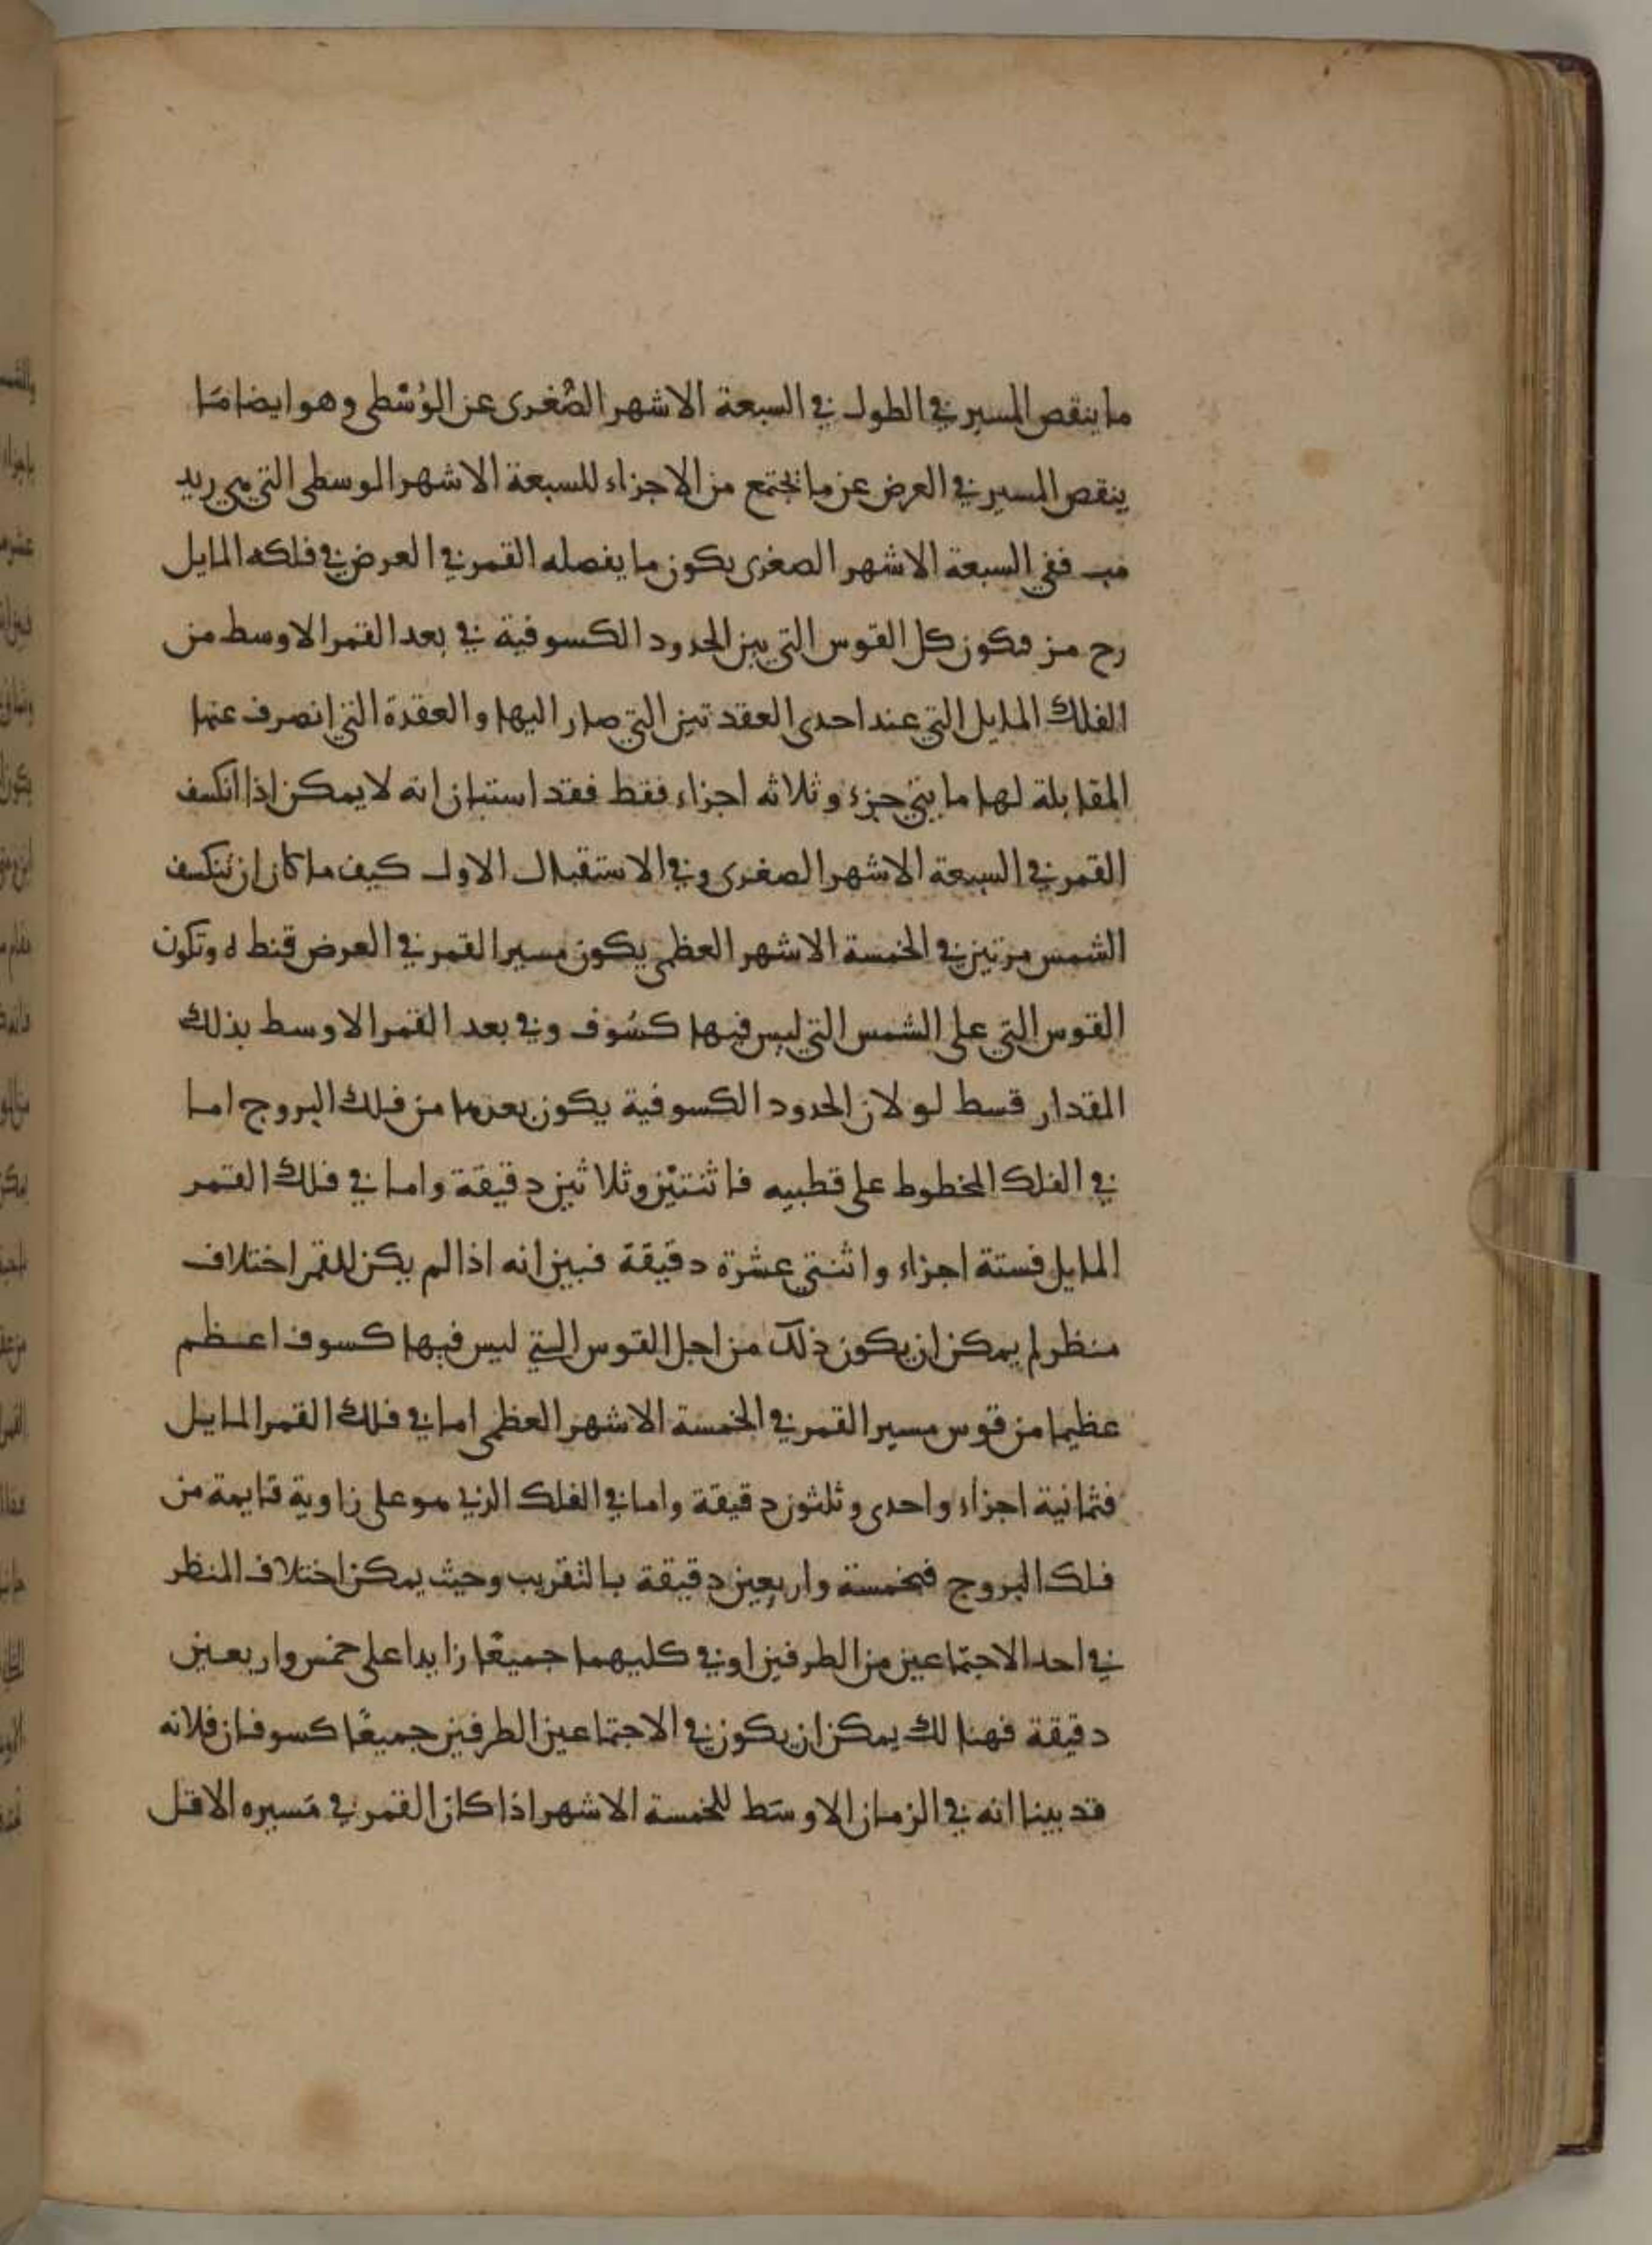 ما ينقص المسير في الطول في السبعة الاشهر الصُغرى عن الوُسْطى وهو ايضا مَا
ينقص المسير في العرض عن ما تجتمع من الاجزاء للسبعة الاشهر الوسطى التي هي ريد
مب ففي السبعة الاشهر الصغرى يكون ما يفصله القمر في العرض في فلكه المايل
رح مز فتكون كل القوس التي بين الحدود الكسوفية في بعد القمر الاوسط من
الفلك المايل التي عند احدى العقدتين التي صار اليها والعقدة التي انصرف عنها
المقابلة لها مايتي جزء وثلاثه اجزاء فقط فقد استبان انه لا يمكن اذا انكسف
القمر في السبعة الاشهر الصغرى وفي الاستقبال الاول كيف ما كان ان تنكسف
الشمس مرتين في الخمسة الاشهر العظمى يكون مسير القمر في العرض قنط ه وتكون
القوس التي على الشمس التي ليس فيها كسُوف وفي بعد القمر الاوسط بذلك
المقدار قسط لو لان الحدود الكسوفية يكون بعدها من فلك البروج اما
في الفلك المخطوط على قطبيه فاثنتيْن وثلاثين دقيقة واما في فلك القمر
المايل فستة اجزاء واثنتي عشرة دقيقة فبين انه اذا لم يكن للقمر اختلاف
منظر لم يمكن ان يكون ذلك من اجل القوس التي ليس فيها كسوف اعظم
عظيما من قوس مسير القمر في الخمسة الاشهر العظمى اما في فلك القمر المايل
فثمانية اجزاء واحدى وثلثون دقيقة واما في الفلك الذي هو على زاوية قايمة من
فلك البروج فخمسة واربعين دقيقة بالتقريب وحيث يمكن اختلاف المنظر
في احد الاجتماعين من الطرفين اوفي كليهما جميعًا زايدا على خمس واربعين
دقيقة فهنالك يمكن ان يكون في الاجتماعين الطرفين جميعًا كسوفان فلانه
قد بينا انه في الزمان الاوسَط للخمسة الاشهر اذا كان القمر في مَسيره الاقل